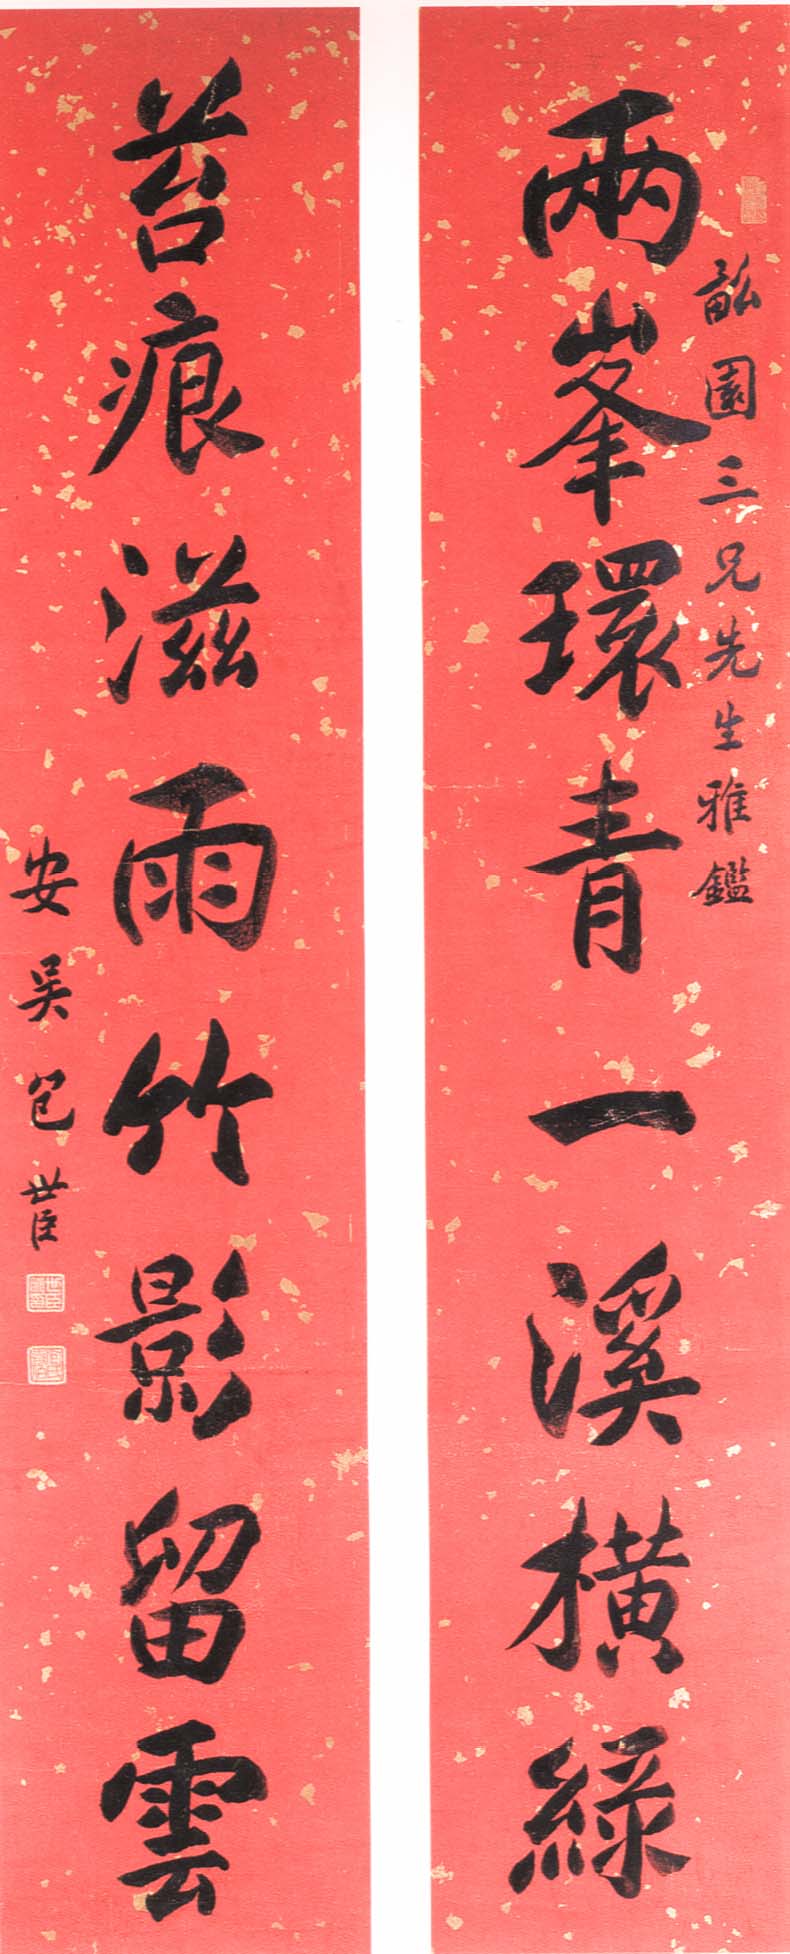 畝園三兄先生雅鑑
兩峯環青一溪橫綠
苔痕滋雨竹影留雲
安吳包世臣